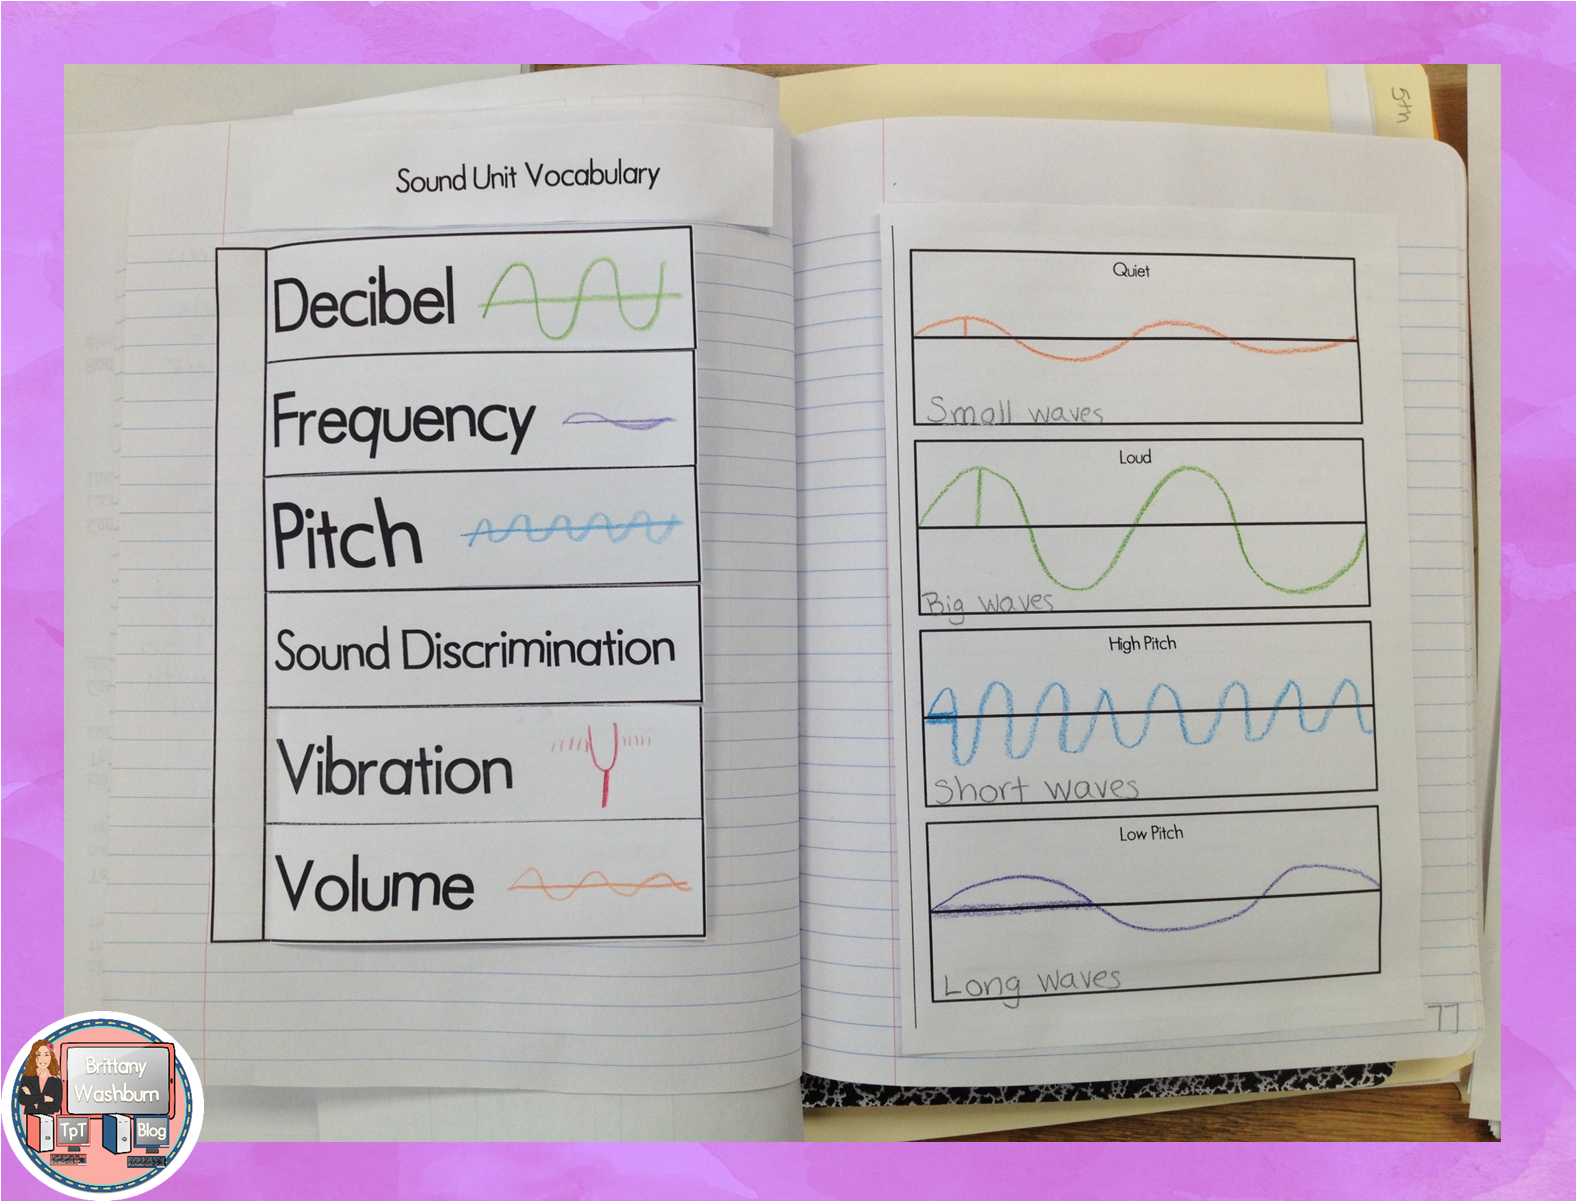 5th
Sound Unit Vocabulary
Decibel
Frequency
Pitch
Sound Discrimination
Vibration
Volume
Quiet
Small waves
Loud
Big waves
High Pitch
Short waves
Low Pitch
Long waves
77
Brittany
Washburn
TpT
Blog